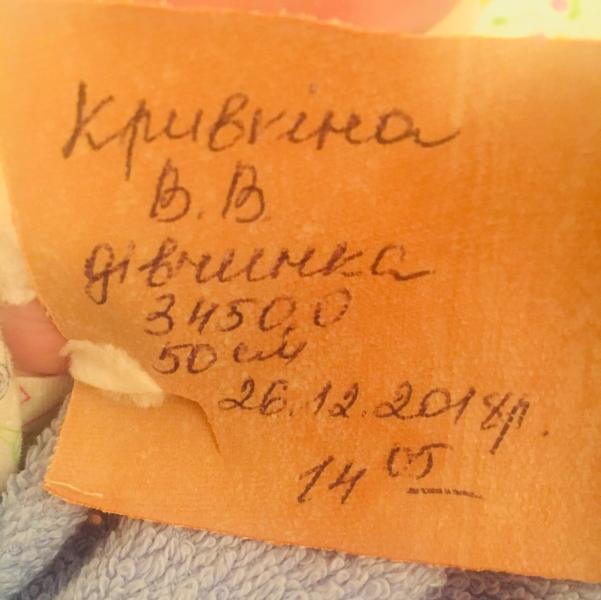 Кривкіна
В. В
дівчинка
3450,0
50 см
26.12.2018р.
14 05